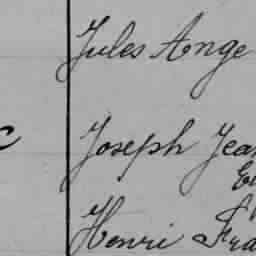 Jules Ange
Joseph Jea
Henri Fra